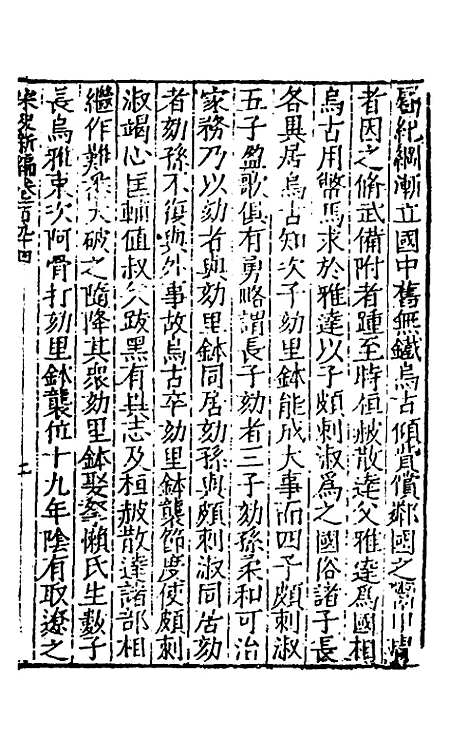 屬紀綱漸立國中舊無鐵烏古傾貲償鄰國之鬻甲胄
者因之脩武備附者踵至時桓赧散達父雅達爲國相
烏古用幣馬求於雅達以子頗刺淑爲之國俗諸子長
各異居烏古知次子劾里鉢能成大事而四子頗刺淑
五子盈歌俱有勇略謂長子劾者三子劾孫柔和可治
家務乃以劾者與劾里鉢同居劾孫與頗刺淑同居劾
者劾孫不復與外事故烏古卒劾里鉢襲節度使頗刺
淑竭心匡輔值叔父跋黑有異志及桓赧散達諸部相
繼作難悉大破之隨降其衆劾里鉢娶拏懶氏生數子
長烏雅束次阿骨打劾里鉢襲位十九年陰有取遼之
宋史新編卷一百九十四